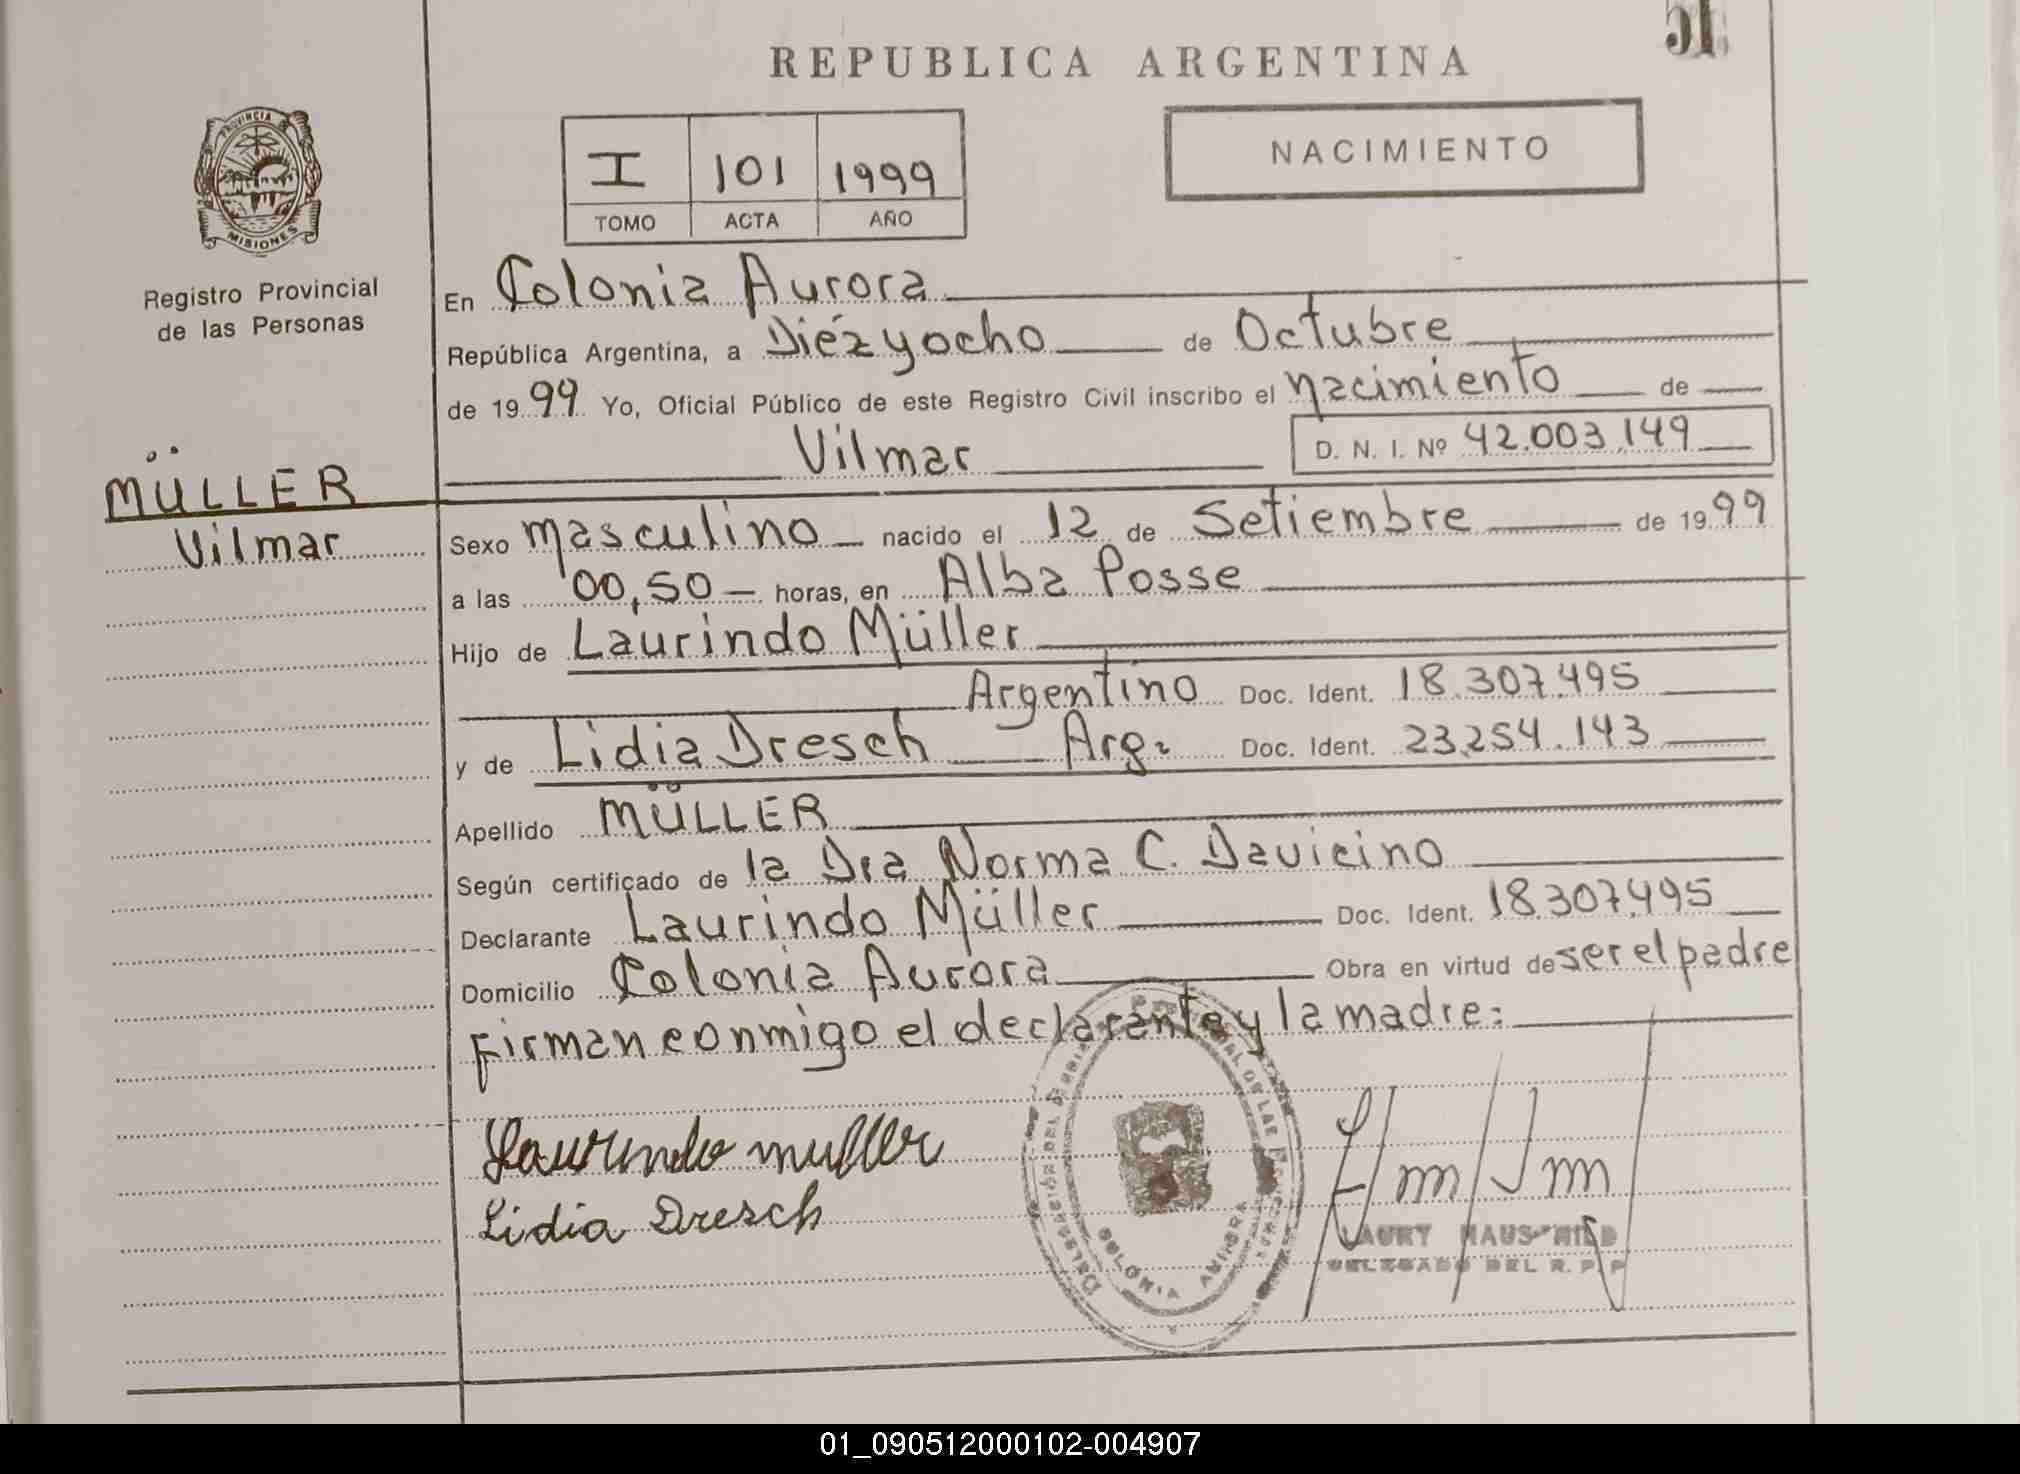 51
REPUBLICA ARGENTINA
PROVINCIA
MISIONES
Registro Provincial
de las Personas
I 101 1999
TOMO ACTA AÑO
NACIMIENTO
En Colonia Aurora
República Argentina, a Diézyocho de Octubre
de 1999 Yo, Oficial Público de este Registro Civil inscribo el nacimiento de
Vilmar D. N. I. Nº 42.003.149
MÜLLER
Vilmar
Sexo masculino nacido el 12 de Setiembre de 1999
a las 00,50 horas, en Alba Posse
Hijo de Laurindo Müller
Argentino Doc. Ident. 18.307.495
y de Lidia Dresch Arg. Doc. Ident. 23.254.143
Apellido MÜLLER
Según certificado de la Dra Norma C. Davicino
Declarante Laurindo Müller Doc. Ident. 18.307.495
Domicilio Colonia Aurora Obra en virtud de ser el padre
Firman conmigo el declarante y la madre:
Laurindo muller
Lidia Dresch
COLONIA AURORA
LAURY
DELEGADO DEL R. P. P
01_090512000102-004907